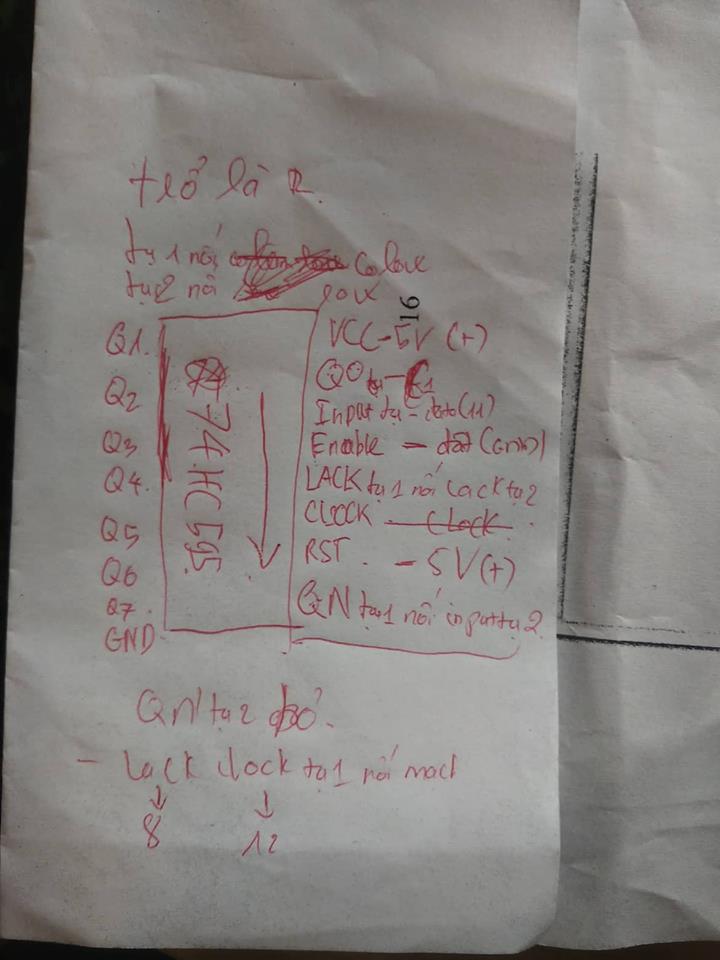 trở là R
tụ 1 nối colow
tụ 2 nối low
16
Q1.
Q2
Q3
Q4.
Q5
Q6
Q7.
GND
74HC595
VCC-5V (+)
Q0
Input tụ - data(11)
Enable - đất (GND)
LACK tụ 1 nối Lack tụ 2
CLOCK - Clock.
RST. - 5V(+)
QN tụ 1 nối input tụ 2
QN tụ 2 bỏ.
- Lack clock tụ 1 nối mach
8 12